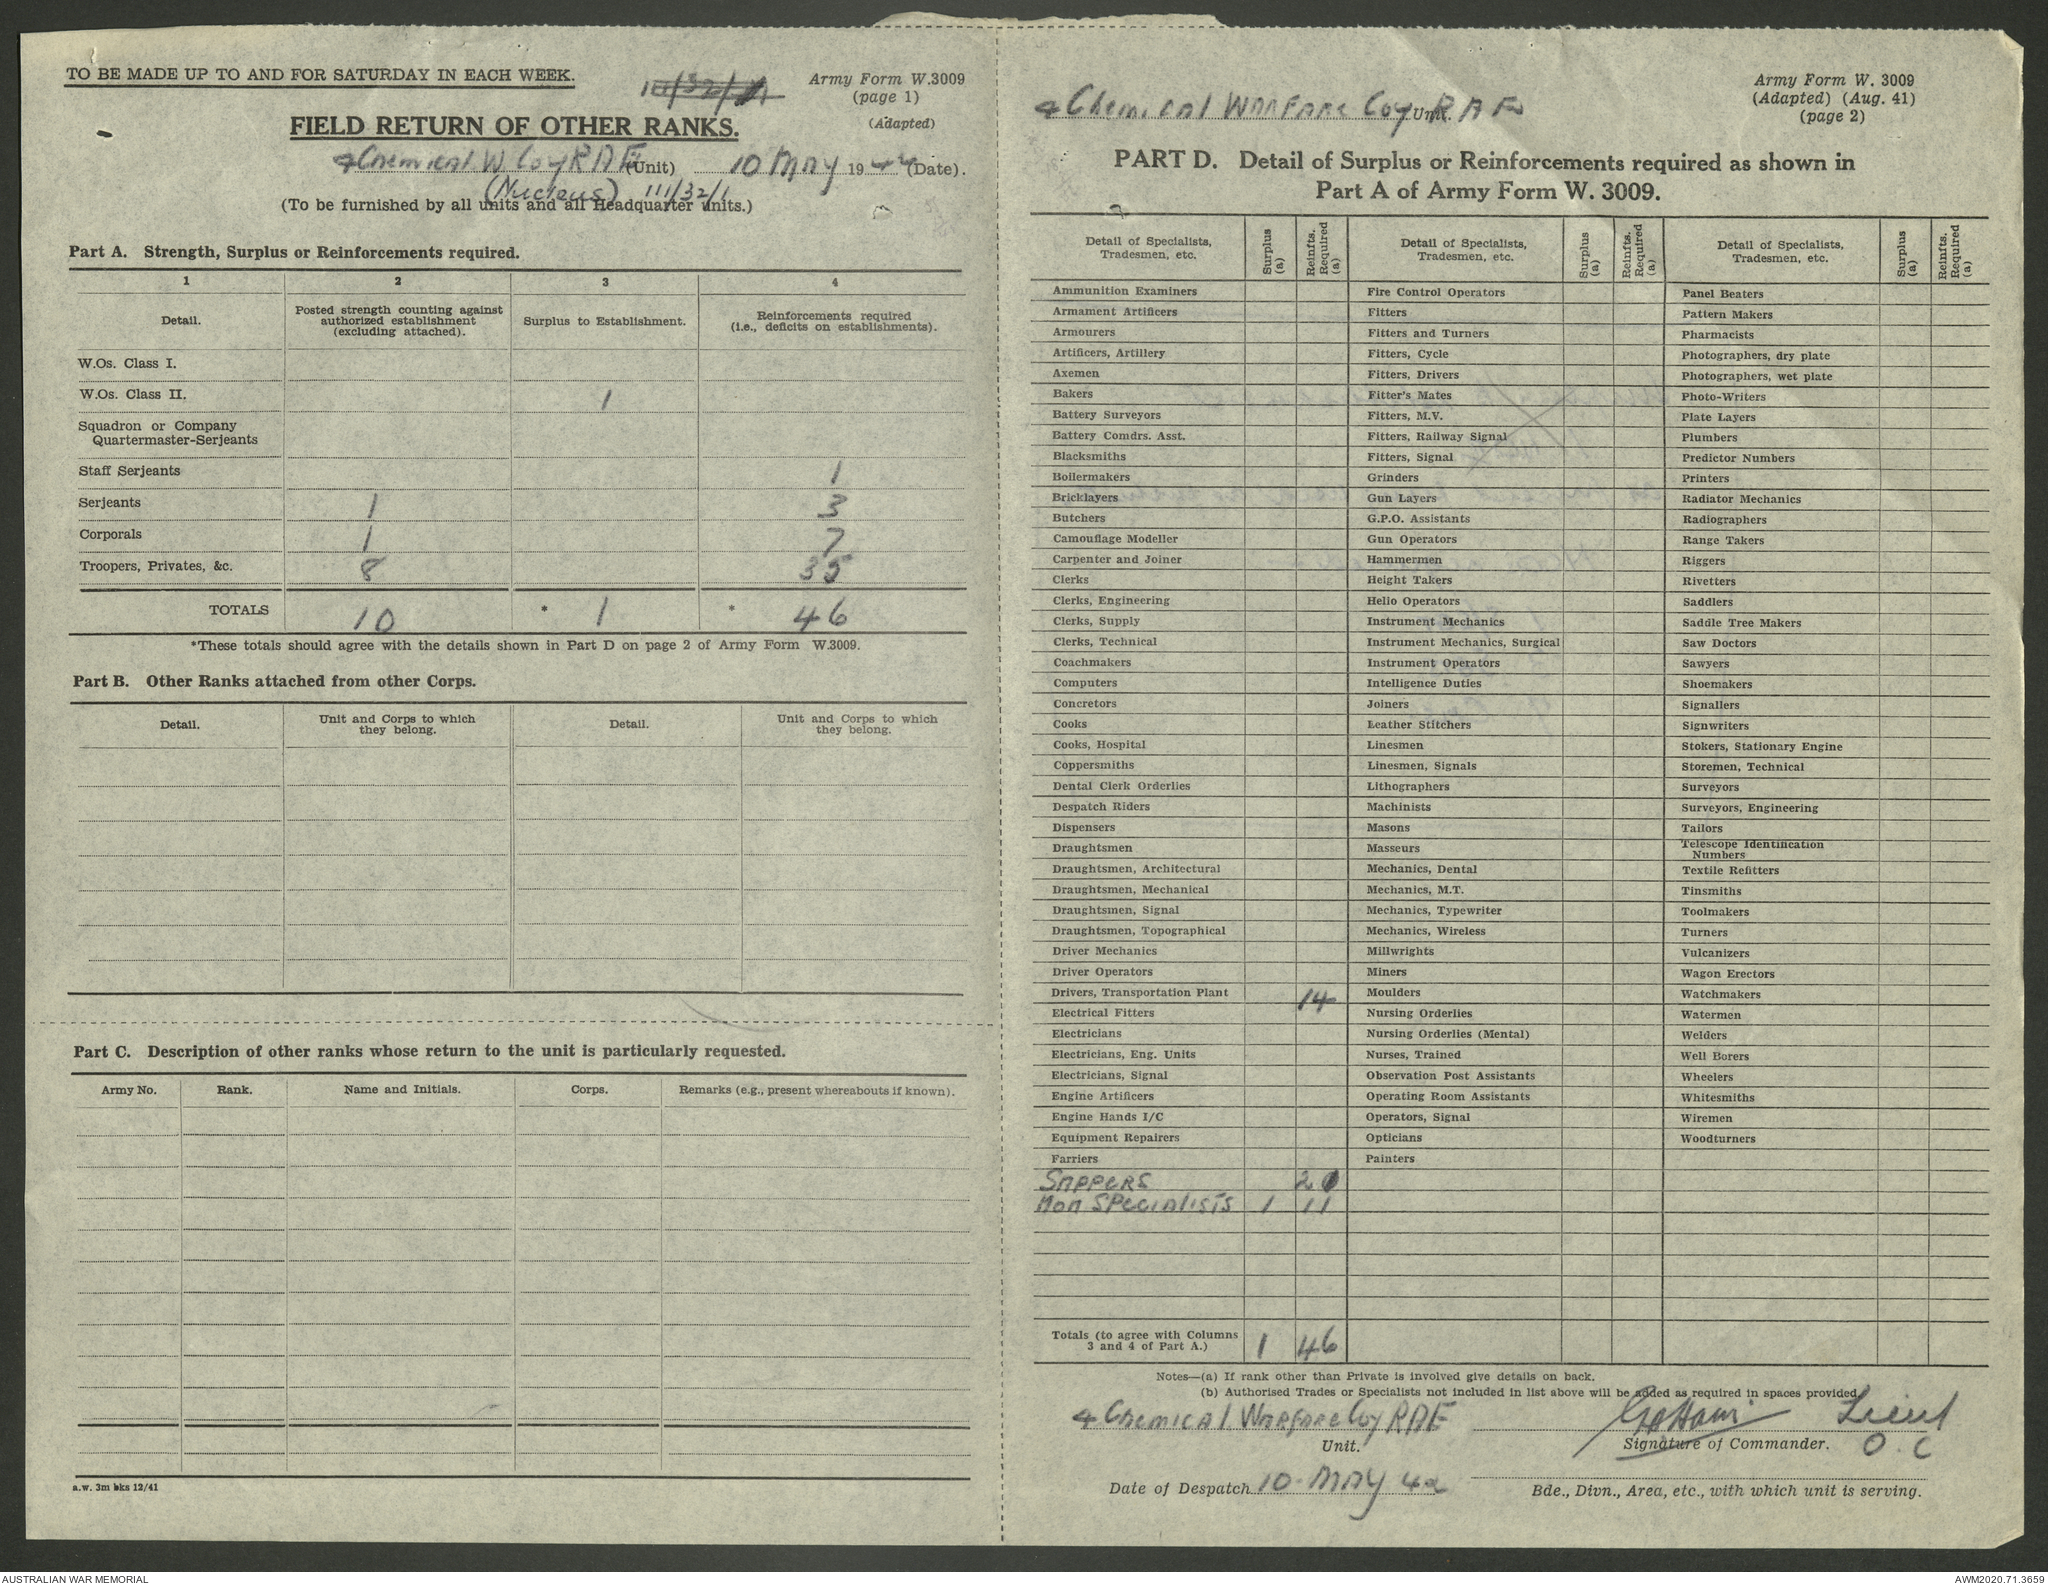 TO BE MADE UP TO AND FOR SATURDAY IN EACH WEEK.
Army Form W.3009
(page 1)
(Adapted)
FIELD RETURN OF OTHER RANKS.
4 Chemical W Coy RAE (Unit) 10 May 1942 (Date).
(Nucleus) 111/32/1
(To be furnished by all units and all Headquarter units.)
Part A. Strength, Surplus or Reinforcements required.
1 2 3 4
Detail. Posted strength counting against authorized establishment (excluding attached). Surplus to Establishment. Reinforcements required (i.e., deficits on establishments).
W.Os. Class I.
W.Os. Class II. 1
Squadron or Company
Quartermaster-Serjeants
Staff Serjeants 1
Serjeants 1 3
Corporals 1 7
Troopers, Privates, &c. 8 35
TOTALS 10 * 1 * 46
*These totals should agree with the details shown in Part D on page 2 of Army Form W.3009.
Part B. Other Ranks attached from other Corps.
Detail. Unit and Corps to which they belong. Detail. Unit and Corps to which they belong.
Part C. Description of other ranks whose return to the unit is particularly requested.
Army No. Rank. Name and Initials. Corps. Remarks (e.g., present whereabouts if known).
a.w. 3m bks 12/41
Army Form W. 3009
(Adapted) (Aug. 41)
(page 2)
4 Chemical Warfare Coy Unit. RAE
PART D. Detail of Surplus or Reinforcements required as shown in
Part A of Army Form W. 3009.
Detail of Specialists, Tradesmen, etc. Surplus (a) Reinfts. Required (a) Detail of Specialists, Tradesmen, etc. Surplus (a) Reinfts. Required (a) Detail of Specialists, Tradesmen, etc. Surplus (a) Reinfts. Required (a)
Ammunition Examiners Fire Control Operators Panel Beaters
Armament Artificers Fitters Pattern Makers
Armourers Fitters and Turners Pharmacists
Artificers, Artillery Fitters, Cycle Photographers, dry plate
Axemen Fitters, Drivers Photographers, wet plate
Bakers Fitter's Mates Photo-Writers
Battery Surveyors Fitters, M.V. Plate Layers
Battery Comdrs. Asst. Fitters, Railway Signal Plumbers
Blacksmiths Fitters, Signal Predictor Numbers
Boilermakers Grinders Printers
Bricklayers Gun Layers Radiator Mechanics
Butchers G.P.O. Assistants Radiographers
Camouflage Modeller Gun Operators Range Takers
Carpenter and Joiner Hammermen Riggers
Clerks Height Takers Rivetters
Clerks, Engineering Helio Operators Saddlers
Clerks, Supply Instrument Mechanics Saddle Tree Makers
Clerks, Technical Instrument Mechanics, Surgical Saw Doctors
Coachmakers Instrument Operators Sawyers
Computers Intelligence Duties Shoemakers
Concretors Joiners Signallers
Cooks Leather Stitchers Signwriters
Cooks, Hospital Linesmen Stokers, Stationary Engine
Coppersmiths Linesmen, Signals Storemen, Technical
Dental Clerk Orderlies Lithographers Surveyors
Despatch Riders Machinists Surveyors, Engineering
Dispensers Masons Tailors
Draughtsmen Masseurs Telescope Identification Numbers
Draughtsmen, Architectural Mechanics, Dental Textile Refitters
Draughtsmen, Mechanical Mechanics, M.T. Tinsmiths
Draughtsmen, Signal Mechanics, Typewriter Toolmakers
Draughtsmen, Topographical Mechanics, Wireless Turners
Driver Mechanics Millwrights Vulcanizers
Driver Operators Miners Wagon Erectors
Drivers, Transportation Plant 14 Moulders Watchmakers
Electrical Fitters Nursing Orderlies Watermen
Electricians Nursing Orderlies (Mental) Welders
Electricians, Eng. Units Nurses, Trained Well Borers
Electricians, Signal Observation Post Assistants Wheelers
Engine Artificers Operating Room Assistants Whitesmiths
Engine Hands I/C Operators, Signal Wiremen
Equipment Repairers Opticians Woodturners
Farriers Painters
Sappers 21
Non Specialists 1 11
Totals (to agree with Columns
3 and 4 of Part A.) 1 46
Notes—(a) If rank other than Private is involved give details on back.
(b) Authorised Trades or Specialists not included in list above will be added as required in spaces provided.
4 Chemical Warfare Coy RAE Lieut
Unit. Signature of Commander. O.C
Date of Despatch 10 May 42
Bde., Divn., Area, etc., with which unit is serving.
AUSTRALIAN WAR MEMORIAL AWM2020.71.3659